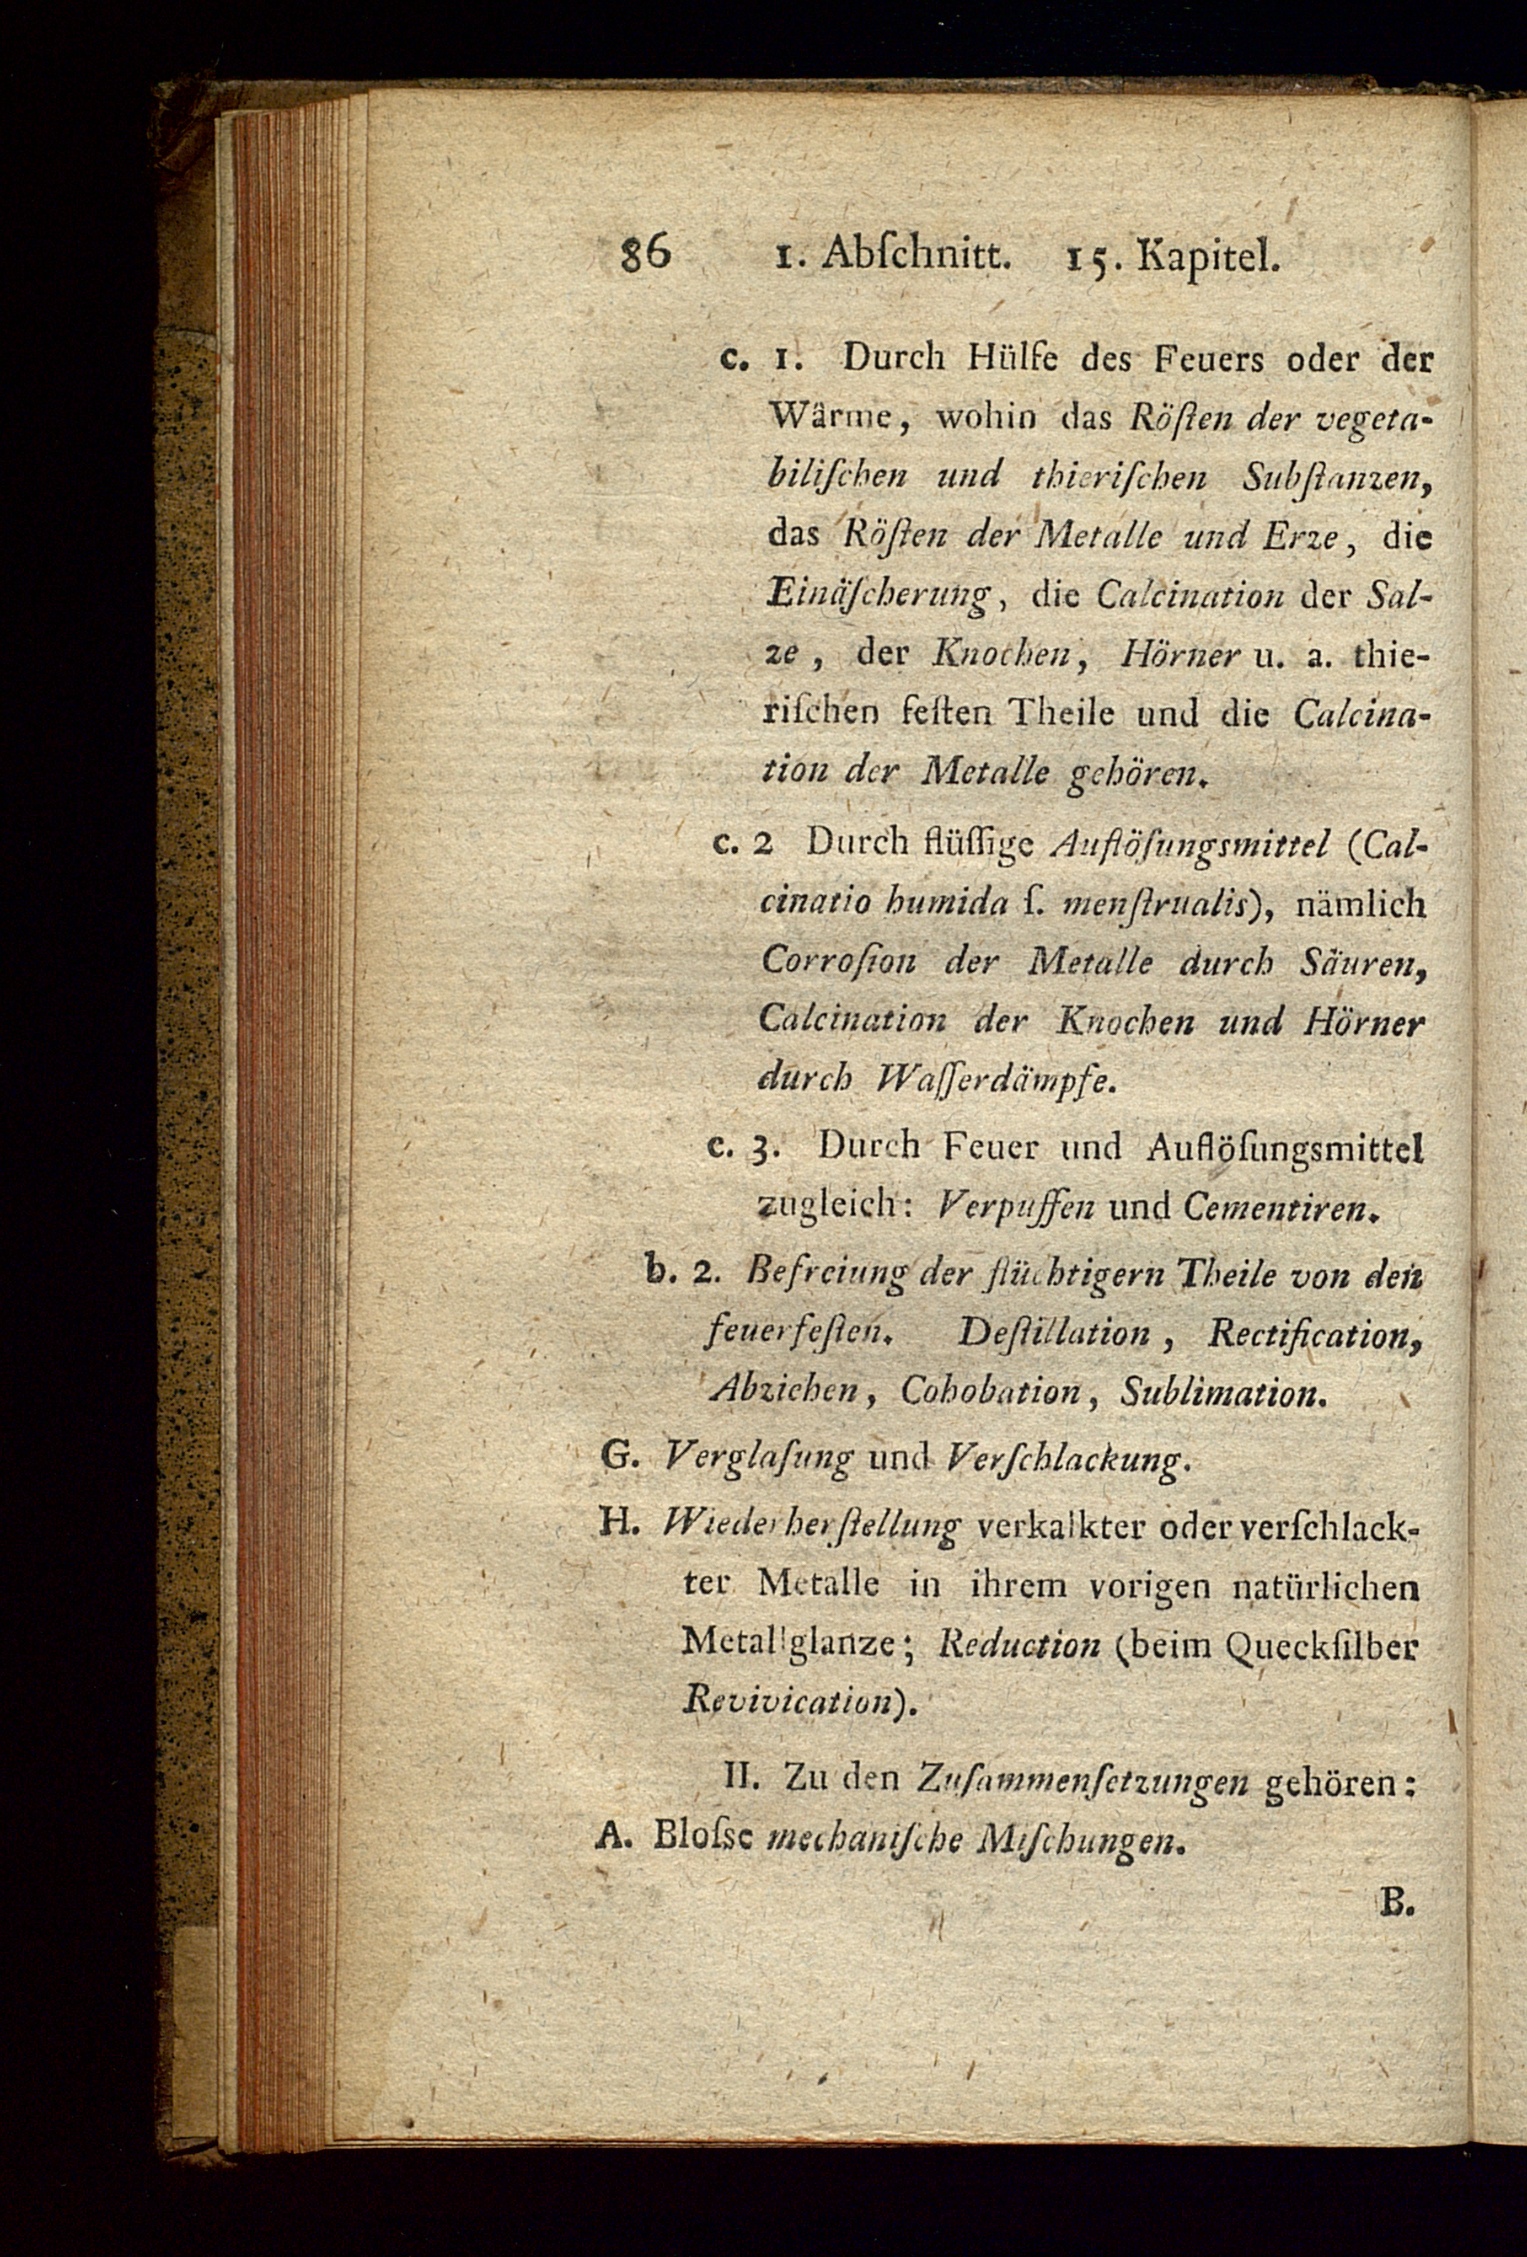 86 1. Abſchnitt. 15. Kapitel.
c. 1. Durch Hülfe des Feuers oder der
Wärme, wohin das Röſten der vegeta-
biliſchen und thieriſchen Subſtanzen,
das Röſten der Metalle und Erze, die
Einäſcherung, die Calcination der Sal-
ze, der Knochen, Hörner u. a. thie-
riſchen feſten Theile und die Calcina-
tion der Metalle gehören.
c. 2 Durch flüſſige Auflöſungsmittel (Cal-
cinatio humida ſ. menſtrualis), nämlich
Corroſion der Metalle durch Säuren,
Calcination der Knochen und Hörner
durch Waſſerdämpfe.
c. 3. Durch Feuer und Auflöſungsmittel
zugleich: Verpuffen und Cementiren.
b. 2. Befreiung der flüchtigern Theile von den
feuerfeſten. Deſtillation, Rectification,
Abziehen, Cohobation, Sublimation.
G. Verglaſung und Verſchlackung.
H. Wiederherſtellung verkalkter oder verſchlack-
ter Metalle in ihrem vorigen natürlichen
Metallglanze; Reduction (beim Queckſilber
Revivication).
II. Zu den Zuſammenſetzungen gehören:
A. Bloſse mechaniſche Miſchungen.
B.